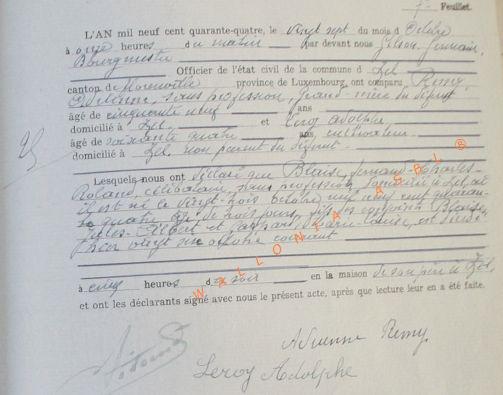 7e Feuillet.
L'AN mil neuf cent quarante-quatre, le vingt sept du mois d'Octobre
à onze heures du matin par devant nous Gilson Germain,
Bourgmestre
Officier de l'état civil de la commune d'Izel
canton de province de Luxembourg, ont comparu Remy,
Adrienne, sans profession, grand-mère du défunt
âgé de cinquante neuf ans
domicilié à Izel et Leroy Adolphe
âgé de soixante quatre ans, cultivateur
domicilié à Izel, non parent du défunt.
Lesquels nous ont déclaré que Blaise, Fernand-Charles-
Roland, célibataire, sans profession, domicilié à Izel, où
il est né le vingt-trois octobre mil neuf cent quaran-
te quatre, âgé de trois jours, fils des conjoints Blaise,
Jules-Albert et Marie-Louise, est décédé
hier vingt six octobre courant
à cinq heures du soir en la maison de son père à Izel
et ont les déclarants signé avec nous le présent acte, après que lecture leur en a été faite.
Adrienne Remy
Leroy Adolphe
WALLONIA ASBL ®